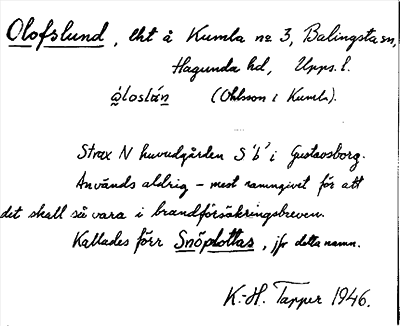 Olofslund, lht å Kumla nr 3, Balingsta sn,
Hagunda hd, Upps. l.
(Ohlsson i Kumla).
Strax N huvudgården S 'b' i Gustavsborg.
Används aldrig – mest namngivet för att
det skall så vara i brandförsäkringsbreven.
Kallades förr Snöplottas, jfr detta namn.
K.-H. Tapper 1946.